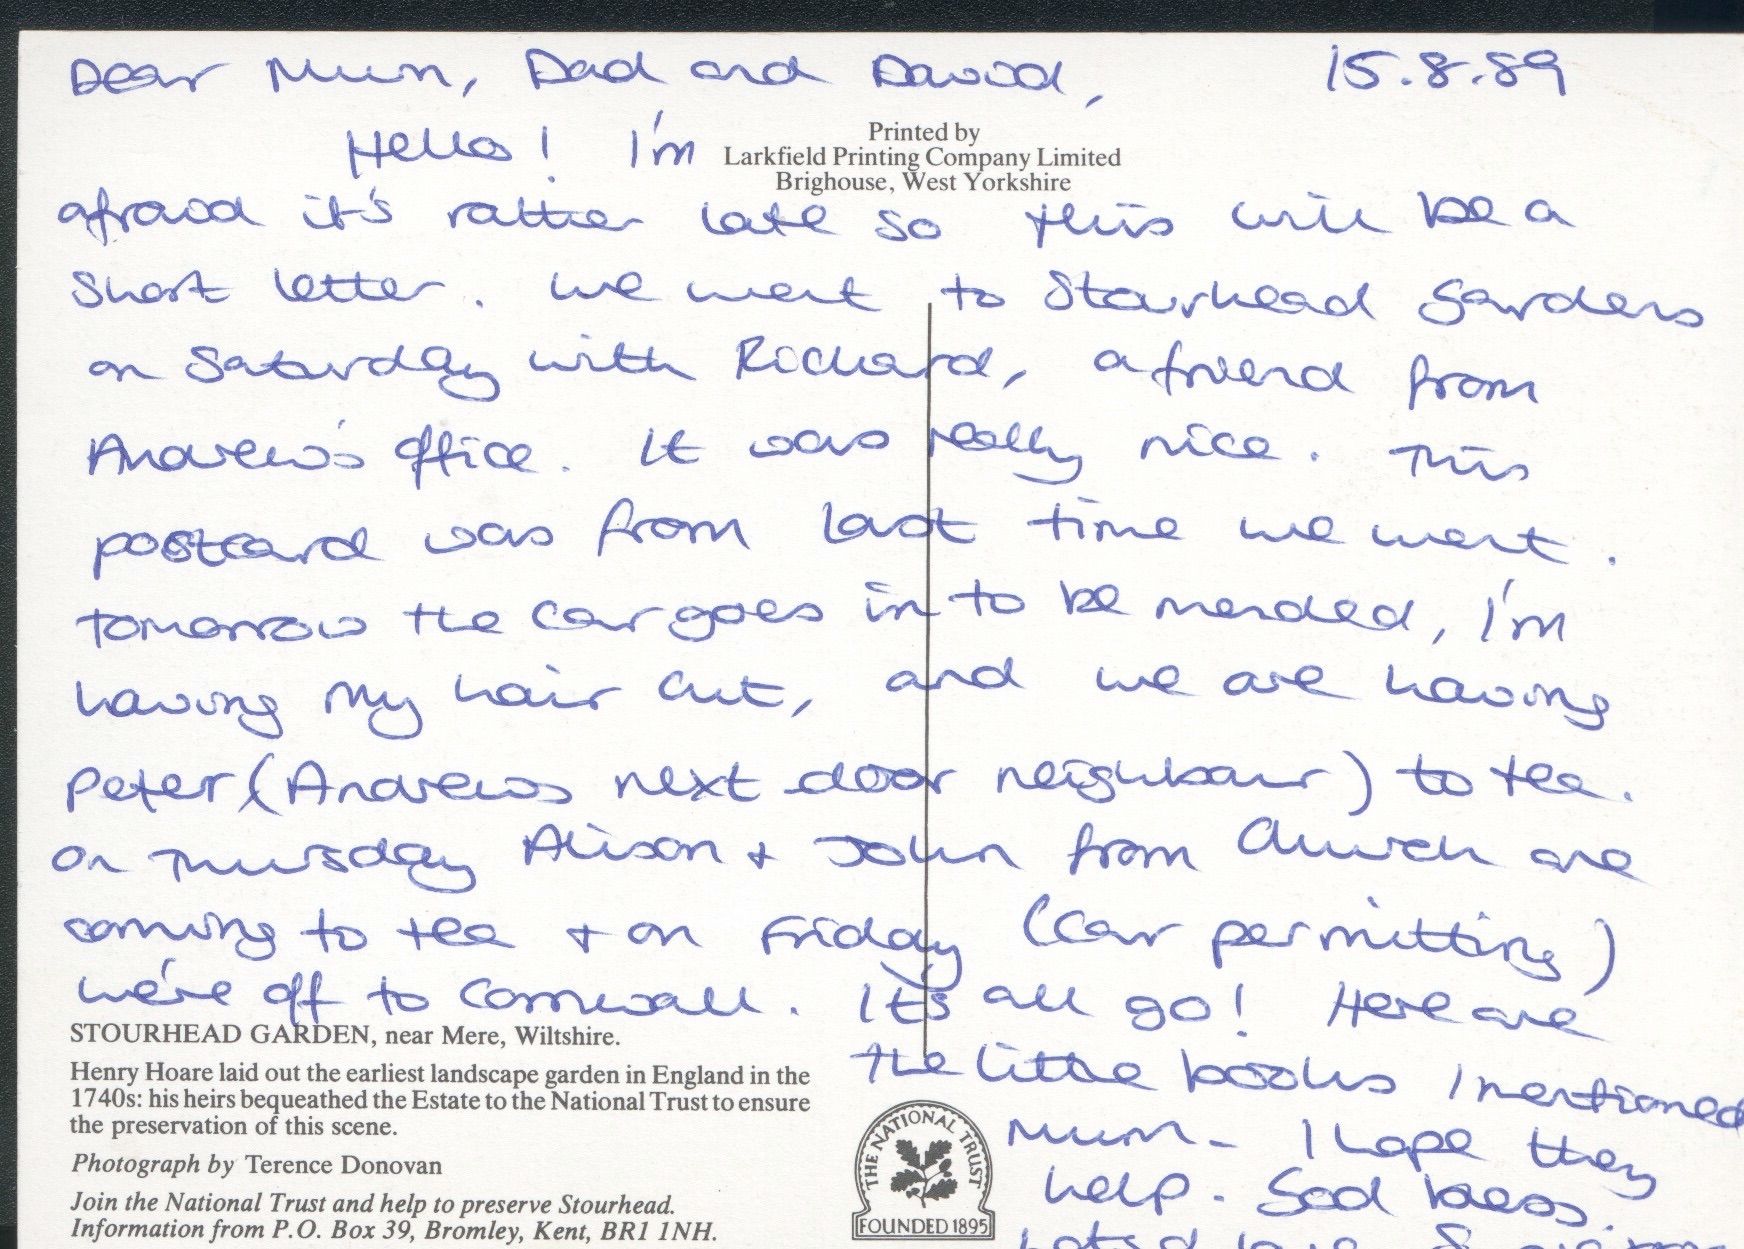 Dear Mum, Dad and David, 15.8.89
Hello! I'm
Printed by
Larkfield Printing Company Limited
Brighouse, West Yorkshire
afraid it's rather late so this will be a
short letter. We went to Stourhead Gardens
on Saturday with Richard, a friend from
Andrew's office. It was really nice. This
postcard was from last time we went.
Tomorrow the car goes in to be mended, I'm
having my hair cut, and we are having
Peter (Andrews next door neighbour) to tea.
On Thursday Alison + John from Church are
coming to tea + on Friday (car permitting)
we're off to Cornwall. It's all go! Here are
the little books I mentioned
Mum - I hope they
help. God bless.
Lots of love
STOURHEAD GARDEN, near Mere, Wiltshire.
Henry Hoare laid out the earliest landscape garden in England in the
1740s: his heirs bequeathed the Estate to the National Trust to ensure
the preservation of this scene.
Photograph by Terence Donovan
Join the National Trust and help to preserve Stourhead.
Information from P.O. Box 39, Bromley, Kent, BR1 1NH.
THE NATIONAL TRUST
FOUNDED 1895